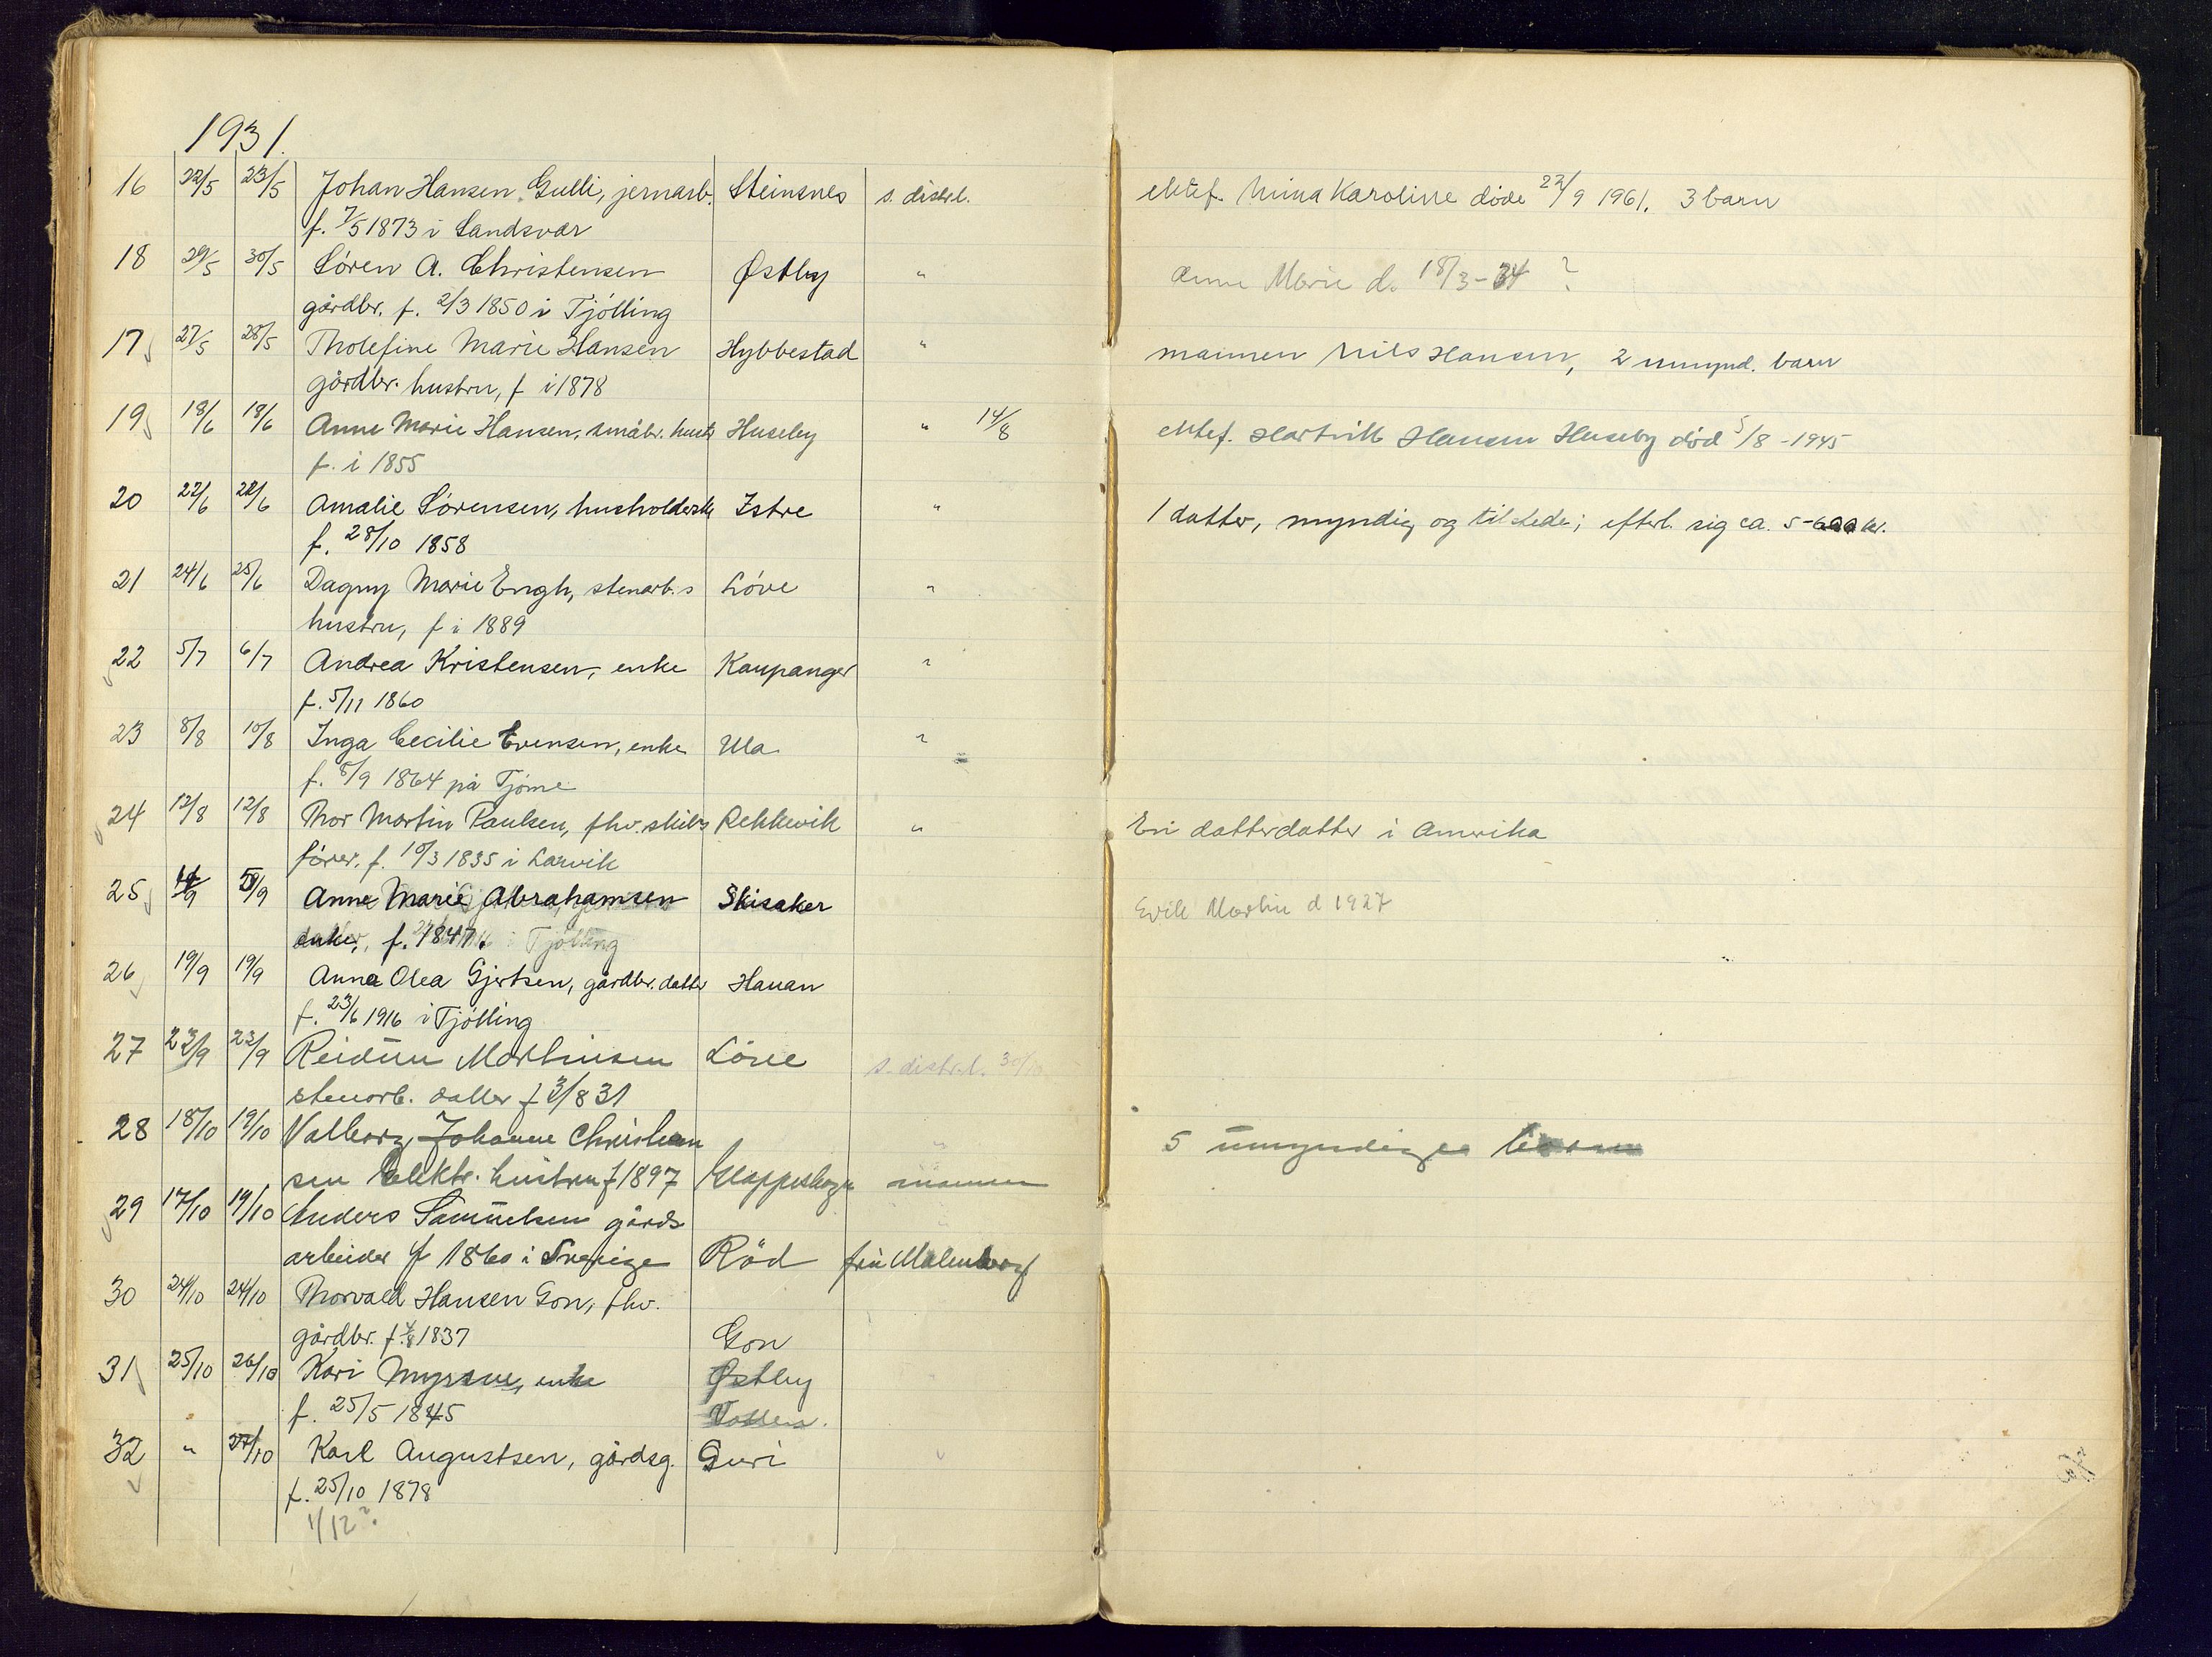 1931.
16 22/5 23/5 Johan Hansen Gulli, jernarb. Steinsnes s. distr.l. ektef. Mina Karoline døde 22/9 1961. 3 barn
f. 7/5 1873 i Sandsvær
18 29/5 30/5 Søren A. Christensen Østby " Anne Marie d. 18/3-34 ?
gårdbr. f. 2/3 1850 i Tjølling
17 27/5 28/5 Tholefine Marie Hansen Hybbestad " mannen Nils Hansen, 2 umynd. barn
gårdbr. hustru, f i 1878
19 18/6 18/6 Anne Marie Hansen, småbr. hustr Huseby " 14/8 ektef. Hartvik Hansen Huseby død 5/8-1945
f. i 1855
20 22/6 22/6 Amalie Sørensen, husholdersk Istre " 1 datter, myndig og tilstede; efterl. sig ca. 5-600 kr.
f. 28/10 1858
21 24/6 25/6 Dagny Marie Engh, stenarb.s Løve "
hustru, f i 1889
22 5/7 6/7 Andrea Kristensen, enke Kaupanger "
f. 5/11 1860
23 8/8 10/8 Inga Cecilie Evensen, enke Ula "
f. 5/9 1864 på Tjøme
24 12/8 12/8 Thor Martin Paulsen, fhv. skibs Rekkevik " En datterdatter i Amerika
fører. f. 10/3 1835 i Larvik
25 /9 /9 Anne Marie Abrahamsen Skisaker Martin d 1927
enke, f. 1847. i Tjølling
26 19/9 19/9 Anna Olea Gjertsen, gårdbr. datter Hauan
f. 23/6 1916 i Tjølling
27 22/9 22/9 Reidun Marthinsen Löve s. distr.l. 30/10
stenarb. datter f 3/8 31
28 18/10 19/10 Valborg Johanne Christian " 5 umyndige barn
sen Elektr. hustru f 1897 Klåppeskogen mannen
29 17/10 19/10 Anders Samuelsen gårds
arbeider f 1860 i Sverige Röd fru Malmberg
30 24/10 24/10 Thorvald Hansen Gon, fhv.
gårdbr. f. 1837 Gon
31 25/10 26/10 Kari Myrene, enke Østby
f. 25/5 1845
32 " 27/10 Karl Augustsen, gårdsg. Guri
f. 25/10 1878
1/12?